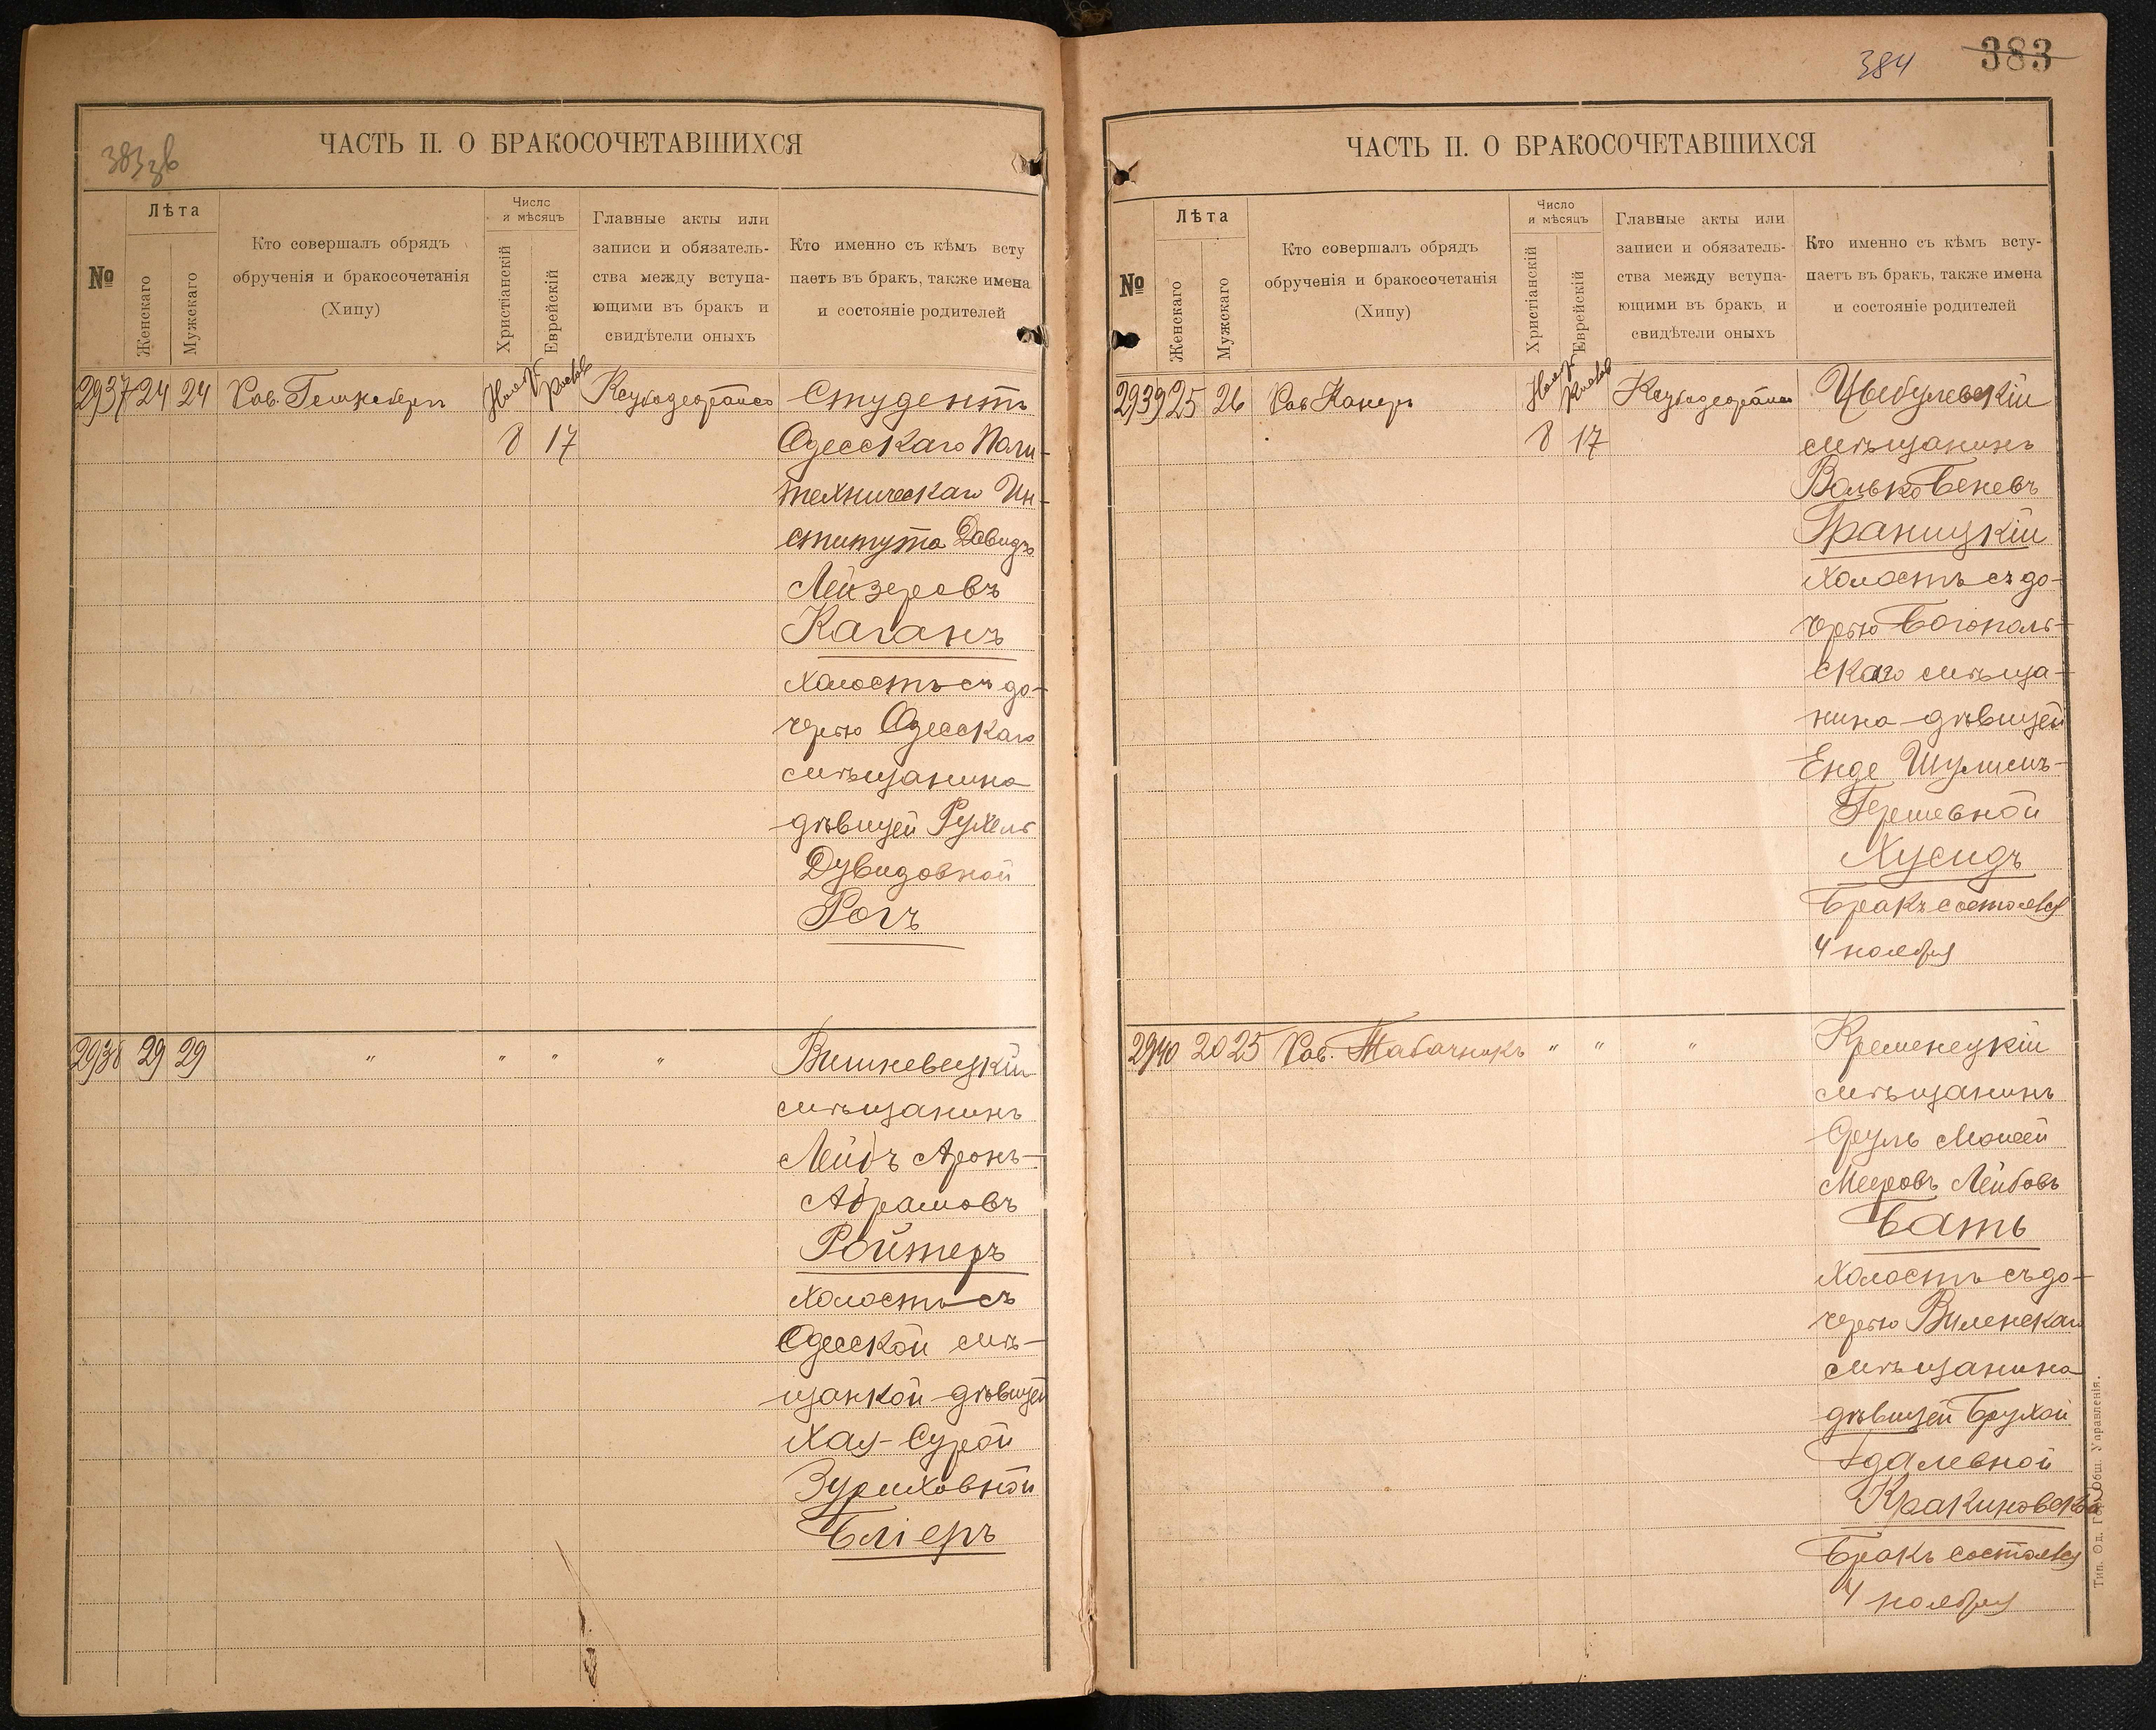 383зв
ЧАСТЬ II. О БРАКОСОЧЕТАВШИХСЯ
№
Лѣта
Женскаго
Мужскаго
Кто совершалъ обрядъ
обрученія и бракосочетанія
(Хипу)
Число
и мѣсяцъ
Христіанскій
Еврейскій
Главные акты или
записи и обязатель-
ства между вступа-
ющими въ бракъ и
свидѣтели оныхъ
Кто именно съ кѣмъ всту
паетъ въ бракъ, также имена
и состояніе родителей
2937 24 24 Рав.
8 17
Студентъ
Одесскаго Поли-
техническаго Ин-
ститута Давидъ
Лейзеровъ
Каганъ
холостъ съ до-
черью Одесскаго
мѣщанина
дѣвицей Рухель
Дувидовной
Рогъ
2938 29 29 " " " "
Вишневецкій
мѣщанинъ
Лейбъ Аронъ-
Абрамовъ
Ройтеръ
холостъ съ
Одесской мѣ-
щанкой дѣвицей
Хая-Сурой
Зуриховной
Бліеръ
384 383
ЧАСТЬ II. О БРАКОСОЧЕТАВШИХСЯ
№
Лѣта
Женскаго
Мужскаго
Кто совершалъ обрядъ
обрученія и бракосочетанія
(Хипу)
Число
и мѣсяцъ
Христіанскій
Еврейскій
Главные акты или
записи и обязатель-
ства между вступа-
ющими въ бракъ и
свидѣтели оныхъ
Кто именно съ кѣмъ всту-
паетъ въ бракъ, также имена
и состояніе родителей
2939 25 26 Рав Канеръ
8 17
Цыбулевскій
мѣщанинъ
Волько Беневъ
Браницкій
холостъ съ до-
черью Богополь-
скаго мѣща-
нина дѣвицей
Енде Шулимъ-
Гершевной
Хусидъ
Бракъ состоялся
4 ноября
2940 20 25 Рав. Табачникъ " " "
Кременецкій
мѣщанинъ
Сруль Моисей
Мееровъ Лейбовъ
Батъ
холостъ съ до-
черью Виленскаго
мѣщанина
дѣвицей Брухой
Адалевной
Бракъ состоялся
4 ноября
Тип. Од. Гор. Общ. Управленія.